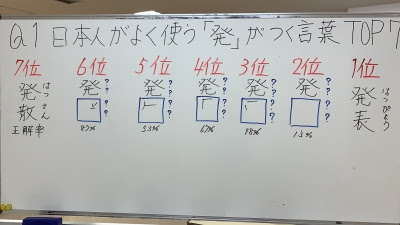 Q1 日本人がよく使う「発」がつく言葉 TOP7
7位 6位 5位 4位 3位 2位 1位
発散 はっさん
発 ????
発 ????
発 ????
発 ????
発 ????
発表 はっぴょう
正解率 87% 53% 67% 98% 13%